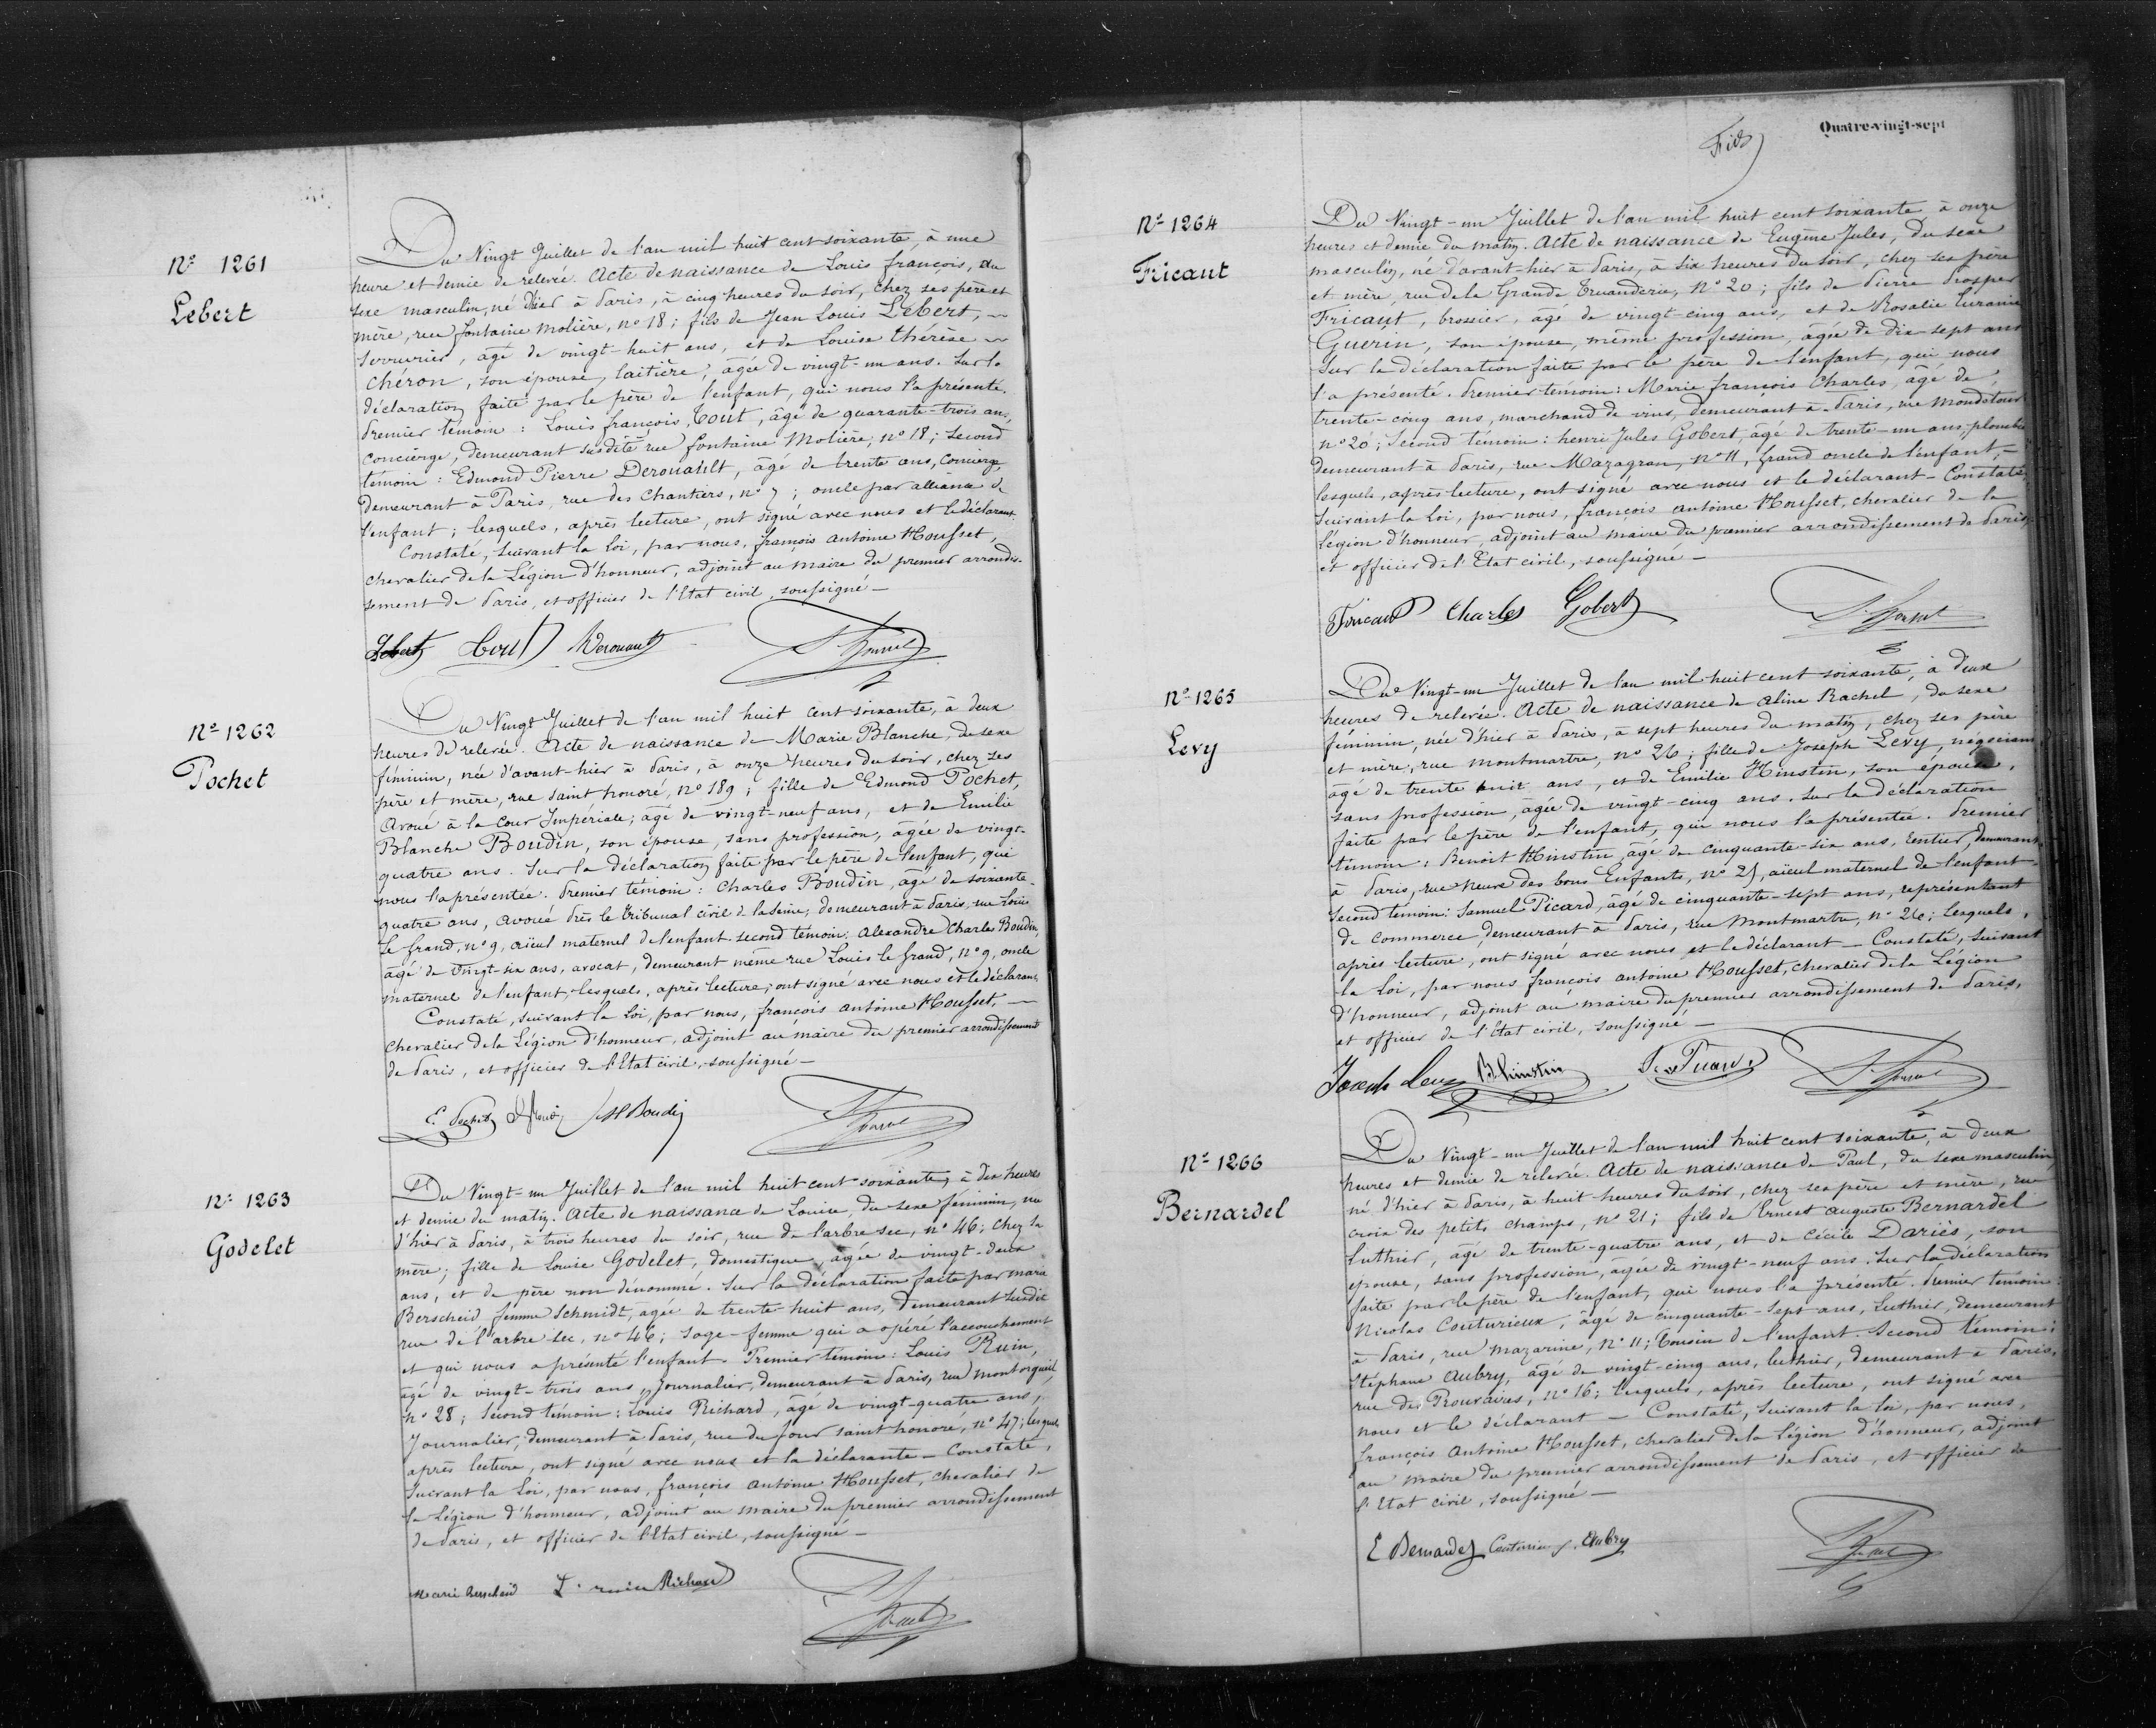 Nº 1261
Lebert
Du Vingt Juillet de l'an mil huit cent soixante, à une
heure et demie de relevée. Acte de naissance de Louis françois, du
sexe masculin, né hier à Paris, à cinq heures du soir, chez ses père et
mère, rue fontaine Molière, nº 18; fils de Jean Louis Lebert,
serrurier, âgé de vingt-huit ans, et de Louise thérèse
chéron, son épouse, laitière, âgée de vingt-un ans. Sur la
déclaration faite par le père de l'enfant, qui nous l'a présenté.
Premier témoin: Louis françois Tout, âgé de quarante-trois ans,
concierge, demeurant susdite rue fontaine Molière, nº 18; Second
témoin: Edmond Pierre Derouault, âgé de trente ans, concierge,
demeurant à Paris, rue des Chantiers, nº 7; oncle par alliance de
l'enfant; lesquels, après lecture, ont signé avec nous et le déclarant.
Constaté, suivant la loi, par nous, françois antoine Housset,
chevalier de la Légion d'honneur, adjoint au maire du premier arrondis-
sement de Paris, et officier de l'Etat civil, soussigné—
Lebert Tout Derouault
Nº 1262
Pochet
Du Vingt Juillet de l'an mil huit cent soixante, à deux
heures de relevée. Acte de naissance de Marie Blanche, du sexe
féminin, née d'avant-hier à Paris, à onze heures du soir, chez ses
père et mère, rue Saint honoré, nº 189; fille de Edmond Pochet,
Avoué à la Cour Impériale, âgé de vingt-neuf ans, et de Emilie
Blanche Boudin, son épouse, sans profession, âgée de vingt-
quatre ans. Sur la déclaration faite par le père de l'enfant, qui
nous l'a présentée. Premier témoin: Charles Boudin, âgé de soixante-
quatre ans, avoué près le tribunal civil de la Seine, demeurant à Paris, rue Louis
le Grand, nº 9, aïeul maternel de l'enfant. second témoin: Alexandre Charles Boudin,
âgé de vingt-six ans, avocat, demeurant même rue Louis le Grand, nº 9, oncle
maternel de l'enfant; lesquels, après lecture, ont signé avec nous et le déclarant.
Constaté, suivant la loi, par nous, françois antoine Housset,
chevalier de la Légion d'honneur, adjoint au maire du premier arrondissement
de Paris, et officier de l'Etat civil, soussigné—
E. Pochet Boudin
Nº 1263
Godelet
Du Vingt-un Juillet de l'an mil huit cent soixante, à dix heures
et demie du matin. Acte de naissance de Louise, du sexe féminin, née
d'hier à Paris, à trois heures du soir, rue de l'arbre sec, nº 46; chez sa
mère; fille de Louise Godelet, domestique, âgée de vingt-deux
ans, et de père non dénommé. Sur la déclaration faite par maria
Berscheid, femme Schmidt, âgée de trente huit ans, demeurant susdite
rue de l'arbre sec, nº 46; sage-femme qui a opéré l'accouchement
et qui nous a présenté l'enfant. Premier témoin: Louis Ruin,
âgé de vingt-trois ans, Journalier, demeurant à Paris, rue montorgueil,
nº 28; second témoin: Louis Richard, âgé de vingt-quatre ans,
Journalier, demeurant à Paris, rue du four saint honoré, nº 47; lesquels
après lecture, ont signé avec nous et la déclarante—Constaté,
suivant la loi, par nous, françois antoine Housset, chevalier de
la Légion d'honneur, adjoint au maire du premier arrondissement
de Paris, et officier de l'Etat civil, soussigné—
Marie Berscheid L. ruin Richard
Quatre-vingt-sept
Nº 1264
Fricaut
Du Vingt-un Juillet de l'an mil huit cent soixante, à onze
heures et demie du matin. Acte de naissance de Eugène Jules, du sexe
masculin, né d'avant-hier à Paris, à six heures du soir, chez ses père
et mère, rue de la Grande Truanderie, Nº 20; fils de Pierre Prosper
Fricaut, brossier, âgé de vingt-cinq ans, et de Rosalie Euranie
Guérin, son épouse, même profession, âgée de dix-sept ans
Sur la déclaration faite par le père de l'enfant, qui nous
l'a présenté. Premier témoin: Marie françois Charles, âgé de
trente-cinq ans, marchand de vins, demeurant à Paris, rue Mondétour
nº 20; Second témoin: henri Jules Gobert, âgé de trente-un ans, plombier
demeurant à Paris, rue Mazagran, Nº 11, Grand oncle de l'enfant,—
lesquels, après lecture, ont signé avec nous et le déclarant—Constaté,
Suivant la loi, par nous, françois antoine Housset, chevalier de la
Légion d'honneur, adjoint au maire du premier arrondissement de Paris
et officier de l'Etat civil, soussigné—
Fricaut Charles Gobert
Nº 1265
Levy
Du Vingt-un Juillet de l'an mil huit cent soixante, à deux
heures de relevée. Acte de naissance de Aline Rachel, du sexe
féminin, née d'hier à Paris, à sept heures du matin, chez ses père
et mère, rue montmartre, nº 26; fille de Joseph Levy, négociant
âgé de trente huit ans, et de Emilie Hinstin, son épouse,
sans profession, âgée de vingt-cinq ans. Sur la déclaration
faite par le père de l'enfant, qui nous l'a présentée. Premier
témoin: Benoit Hinstin, âgé de cinquante-six ans, rentier, demeurant
à Paris, rue neuve des bons Enfants, nº 25, aïeul maternel de l'enfant—
Second témoin: Samuel Picard, âgé de cinquante-sept ans, représentant
de commerce, demeurant à Paris, rue Montmartre, nº 26; lesquels,
après lecture, ont signé avec nous et le déclarant—Constaté, suivant
la loi, par nous françois antoine Housset, chevalier de la Légion
d'honneur, adjoint au maire du premier arrondissement de Paris,
et officier de l'Etat civil, soussigné—
Joseph Levy B Hinstin Picard
Nº 1266
Bernardel
Du Vingt-un Juillet de l'an mil huit cent soixante, à deux
heures et demie de relevée. Acte de naissance de Paul, du sexe masculin,
né d'hier à Paris, à huit heures du soir, chez ses père et mère, rue
croix des petits champs, nº 21; fils de Ernest auguste Bernardel
Luthier, âgé de trente-quatre ans, et de Cécile Dariès, son
épouse, sans profession, âgée de vingt-neuf ans. Sur la déclaration
faite par le père de l'enfant, qui nous l'a présenté. Premier témoin:
Nicolas Couturieux, âgé de cinquante-sept ans, Luthier, demeurant
à Paris, rue Mazarine, Nº 11; Cousin de l'enfant. Second témoin:
Stéphane Aubry, âgé de vingt-cinq ans, luthier, demeurant à Paris,
rue des Prouvaires, nº 16; lesquels, après lecture, ont signé avec
nous et le déclarant—Constaté, suivant la loi, par nous,
françois Antoine Housset, chevalier de la Légion d'honneur, adjoint
au maire du premier arrondissement de Paris, et officier de
l'Etat civil, soussigné—
E Bernardel Couturieux S. Aubry